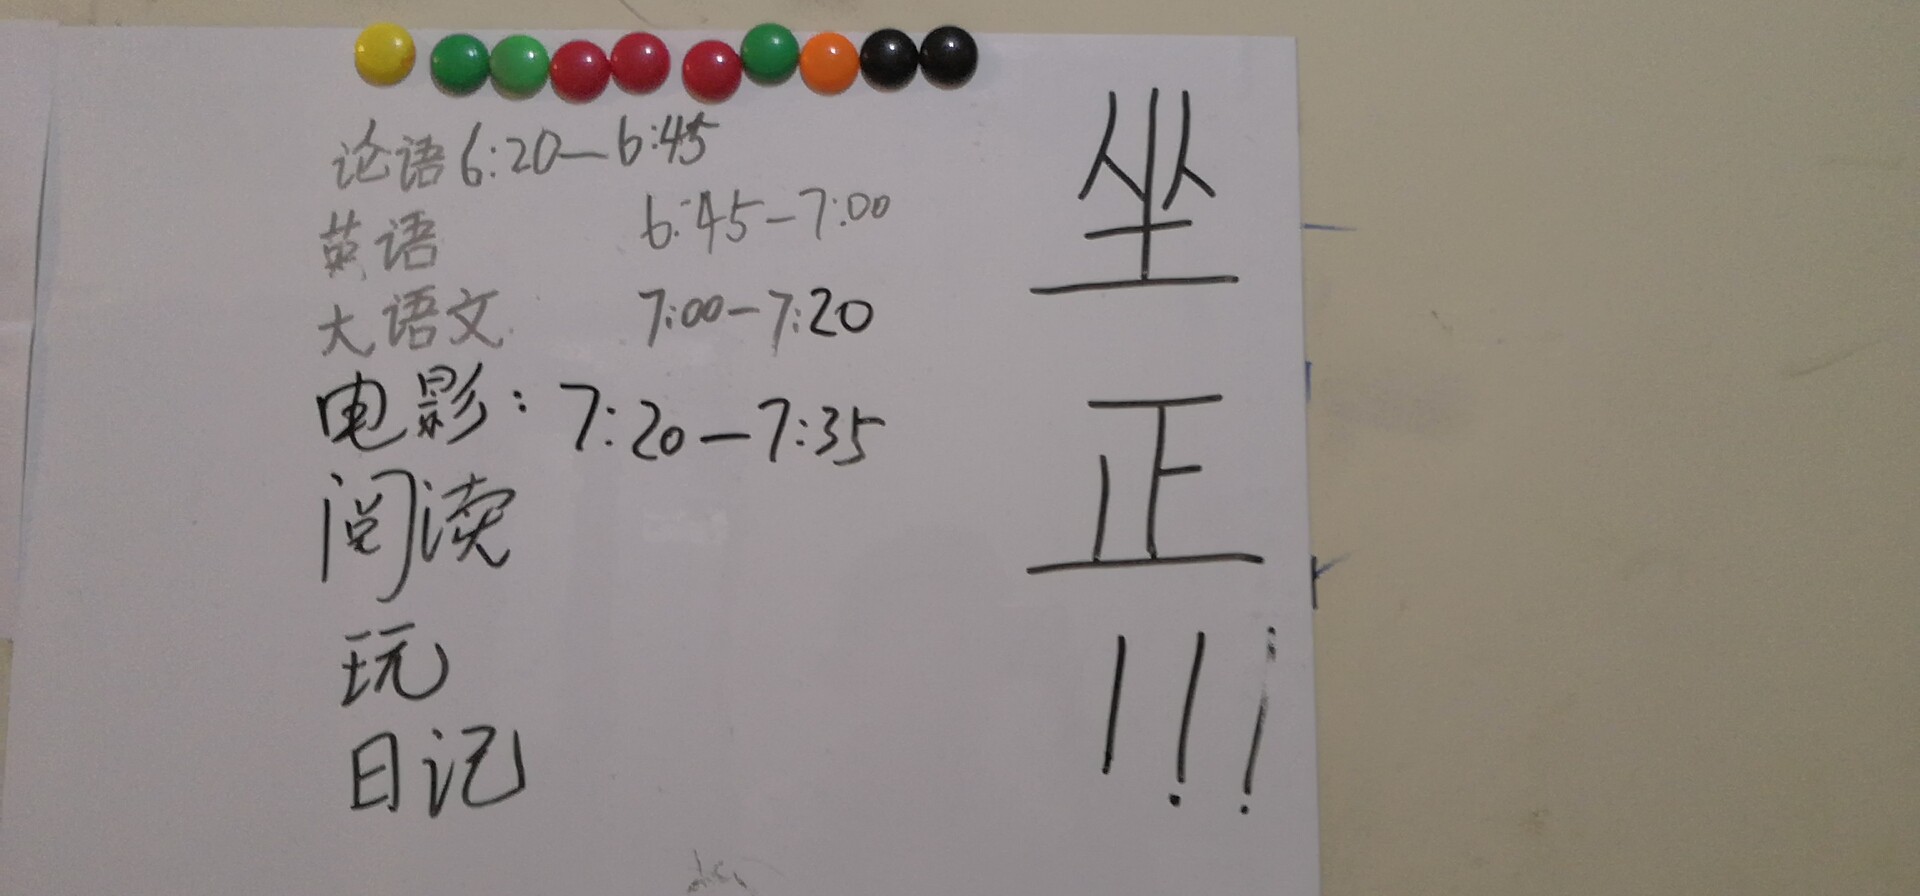 论语6:20—6:45
英语 6:45-7:00
大语文 7:00-7:20
电影：7:20—7:35
阅读
玩
日记
坐
正
!!!